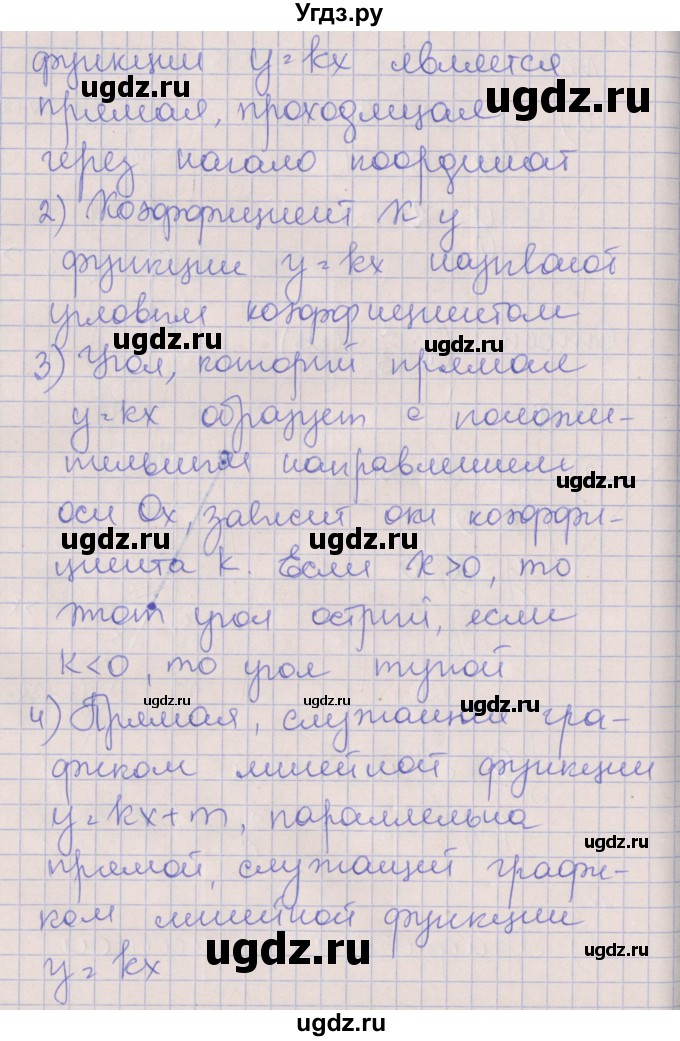 Угдз.ру
функции y=kx является
ugdz.ru
прямая, проходящая
ugdz.ru
через начало координат
2) Коэффициент K у
функции y=kx называют
ugdz.ru
угловым коэффициентом
ugdz.ru
ugdz.ru
3) Угол, который прямая
y=kx образует с положи-
тельным направлением
ugdz.ru
ugdz.ru
оси Ox, зависит от коэффи-
ugdz.ru
ugdz.ru
циента k. Если K>0, то
этот угол острый, если
K<0, то угол тупой
ugdz.ru
ugdz.ru
ugdz.ru
4) Прямая, служащая гра-
фиком линейной функции
y=kx+m, параллельна
ugdz.ru
прямой, служащей графи-
ком линейной функции
ugdz.ru
ugdz.ru
y=kx
ugdz.ru